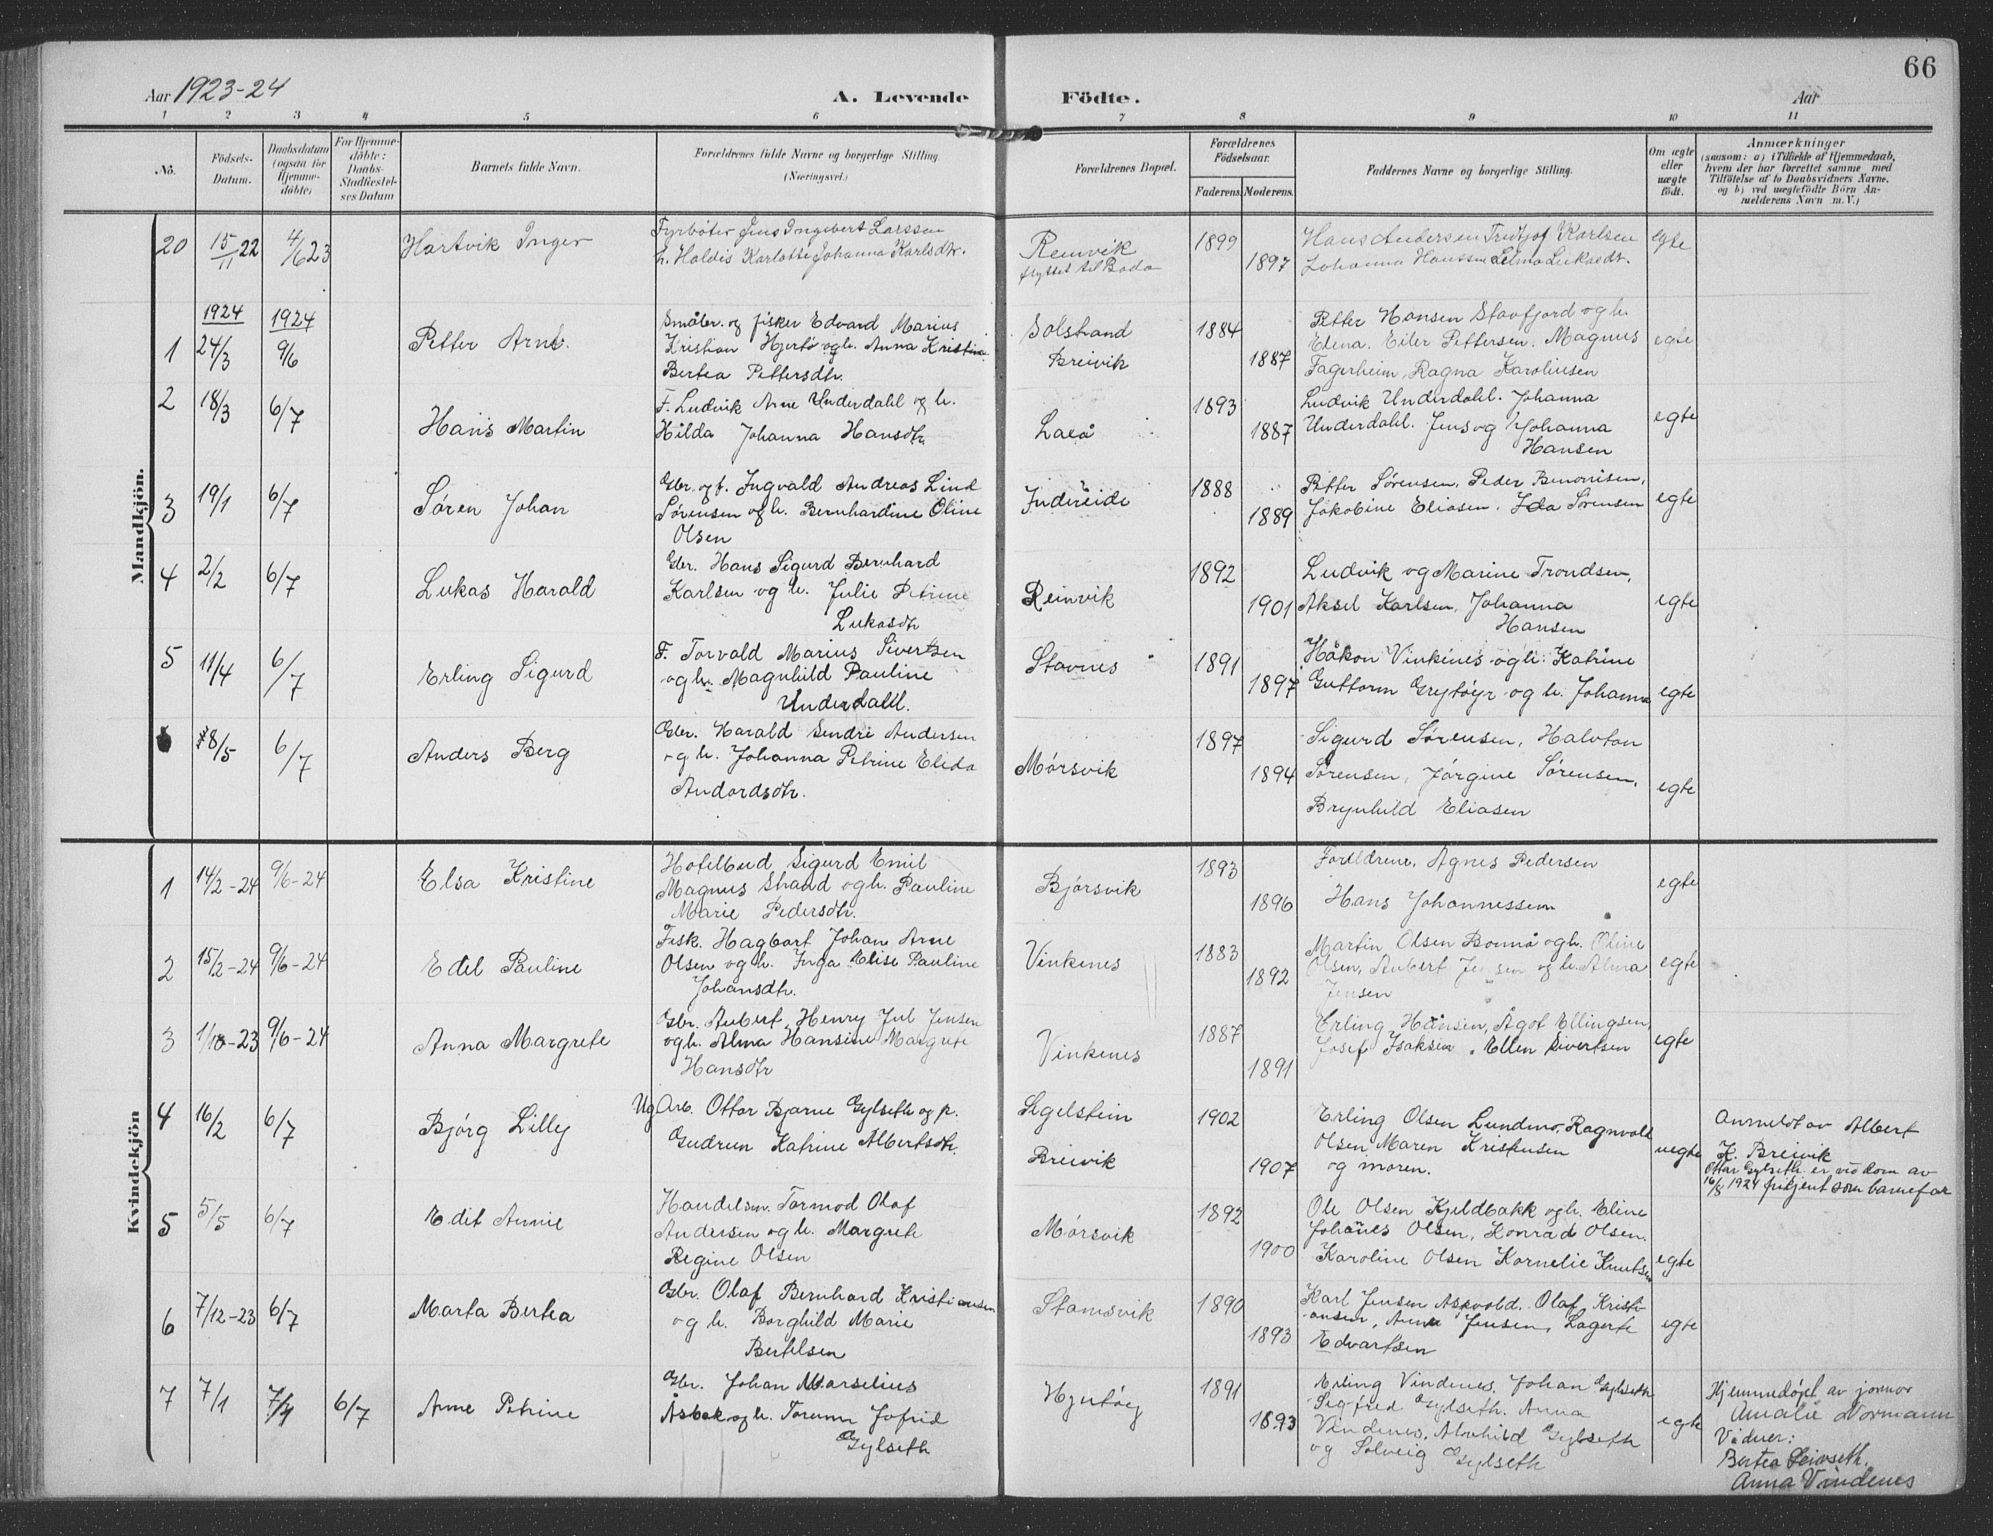 Aar 1923-24
A. Levende Födte.
Aar
66
1 2 3 4 5 6 7 8 9 10 11
No.
Födsels-
Datum.
Daabsdatum
(ogsaa for
Hjemme-
döbte)
For Hjemme-
döbte:
Daabs-
Stadfæstel-
ses Datum
Barnets fulde Navn.
Forældrenes fulde Navne og borgerlige Stilling.
(Næringsvei.)
Forældrenes Bopæl.
Forældrenes
Födselsaar.
Faderens. Moderens.
Faddernes Navne og borgerlige Stilling.
Om ægte
eller
uægte
födt.
Anmærkninger
(saasom: a) i Tilfælde af Hjemmedaab,
hvem der har forrettet samme med
Tilföielse af to Daabsvidners Navne,
og b) ved uægtefödte Börn An-
melderens Navn m. V.)
Mandkjön.
20 15/11 22 4/6 23 Hartvik Inger
Fyrböter Jens Ingebert Larssen
h. Haldis Karlotte Johanna Karlsdtr.
Reinvik
flyttet til Bodö
1899 1897
Hans Andersen Tredjof Karlsen
Johanna Hanssen Selma Lukasdt.
Egte
1 1924 24/3 1924 9/6 Petter Arne.
Småbr. og fisker Edvard Marius
Kristian Hjertö og h. Anna Kristine
Bertea Pettersdtr.
Solstrand
Breivik
1884 1887
Petter Hansen Stavfjord og h.
Elena. Eiler Pettersen. Magnus
Fagerheim, Ragna Karolinsen
egte
2 18/3 6/7 Hans Martin
F. Ludvik Arne Underdahl og h.
Hilda Johanna Hansdtr
Laeå
1893 1887
Ludvik Underdahl. Johanna
Underdahl. Jens og Johanna
Hansen
egte
3 19/1 6/7 Søren Johan
Gbr. og f. Ingvald Andreas Lind
Sørensen og h. Bernhardine Oline
Olsen
Indreeide
1888 1889
Petter Sørensen, Peder Benonisen,
Jakobine Eliasen, Ida Sørensen
egte
4 2/2 6/7 Lukas Harald
Gbr. Hans Sigurd Bernhard
Karlsen og h. Julie Petrine
Lukasdtr
Reinvik
1892 1901
Ludvik og Marine Trondsen,
Aksel Karlsen, Johanna
Hansen
egte
5 11/4 6/7 Erling Sigurd
F. Torvald Marius Sivertsen
og h. Magnhild Pauline
Underdahl.
Stavnes
1891 1897
Håkon Vinkenes og h. Katrine
Guttorm Grytöyr og h. Johanna
egte
6 8/5 6/7 Anders Berg
Gbr. Harald Sendre Andersen
og h. Johanna Petrine Elida
Andordsdtr.
Mørsvik
1897 1894
Sigurd Sørensen, Halvton
Sørensen, Jørgine Sørensen,
Brynhild Eliasen
egte
Kvindekjön
1 14/2-24 9/6-24 Elsa Kristine
Hotelbud Sigurd Emil
Magnus Strand og h. Pauline
Marie Pedersdtr.
Bjørsvik
1893 1896
Foreldrene, Agnes Pedersen
Hans Johannessen
egte
2 15/2-24 9/6-24 Edel Pauline
Fisk. Hagbart Johan Arne
Olsen og h. Inga Elise Pauline
Johansdtr.
Vinkenes
1883 1892
Martin Olsen Bonnå og h. Oline
Olsen, Aubert Jensen og h. Alma
Jensen
egte
3 1/10-23 9/6-24 Anna Margrete
Gbr. Aubert Henry Jul Jensen
og h. Alma Hansine Margrete
Hansdtr
Vinkenes
1887 1891
Erling Hansen, Ågot Ellingsen,
Josef Isaksen, Ellen Sivertsen
egte
4 16/2 6/7 Bjørg Lilly
Ug Arb. Ottar Bjarne Gylseth og p.
Gudrun Katrine Albertsdtr.
Segelstein
Breivik
1902 1907
Erling Olsen Lundmo, Ragnvald
Olsen, Maren Kristensen
og moren.
uegte
Anmeldt av Albert
K. Breivik
Ottar Gylseth er ved dom av
16/8 1924 frikjent som barnefar
5 5/5 6/7 Edit Annie
Handelsm. Tormod Olaf
Andersen og h. Margrete
Regine Olsen
Mørsvik
1892 1900
Ole Olsen Kjeldbakk og h. Eline
Johanes Olsen, Konrad Olsen.
Karoline Olsen Kornelie Knutsen
egte
6 7/12-23 6/7 Marta Bertea
Gbr. Olaf Bernhard Kristiansen
og h. Borghild Marie
Bertelsen
Stamsvik
1890 1893
Karl Jensen Aspvold. Olaf Kristi-
ansen, Anna Jensen, Lagerte
Edvartsen
egte
7 7/1 7/1 6/7 Arne Petrine
Gbr. Johan Marselius
Åsbak og h. Torunn Jofrid
Gylseth
Hjertöy
1891 1893
Erling Vindenes, Johan Gylseth
Sigfred Gylseth. Anna
Vindenes, Alvhild Gylseth
og Solveig Gylseth
egte
Hjemmedöpt av jormor
Amalie Normann
Vidner:
Bertea Leivseth.
Anna Vindenes